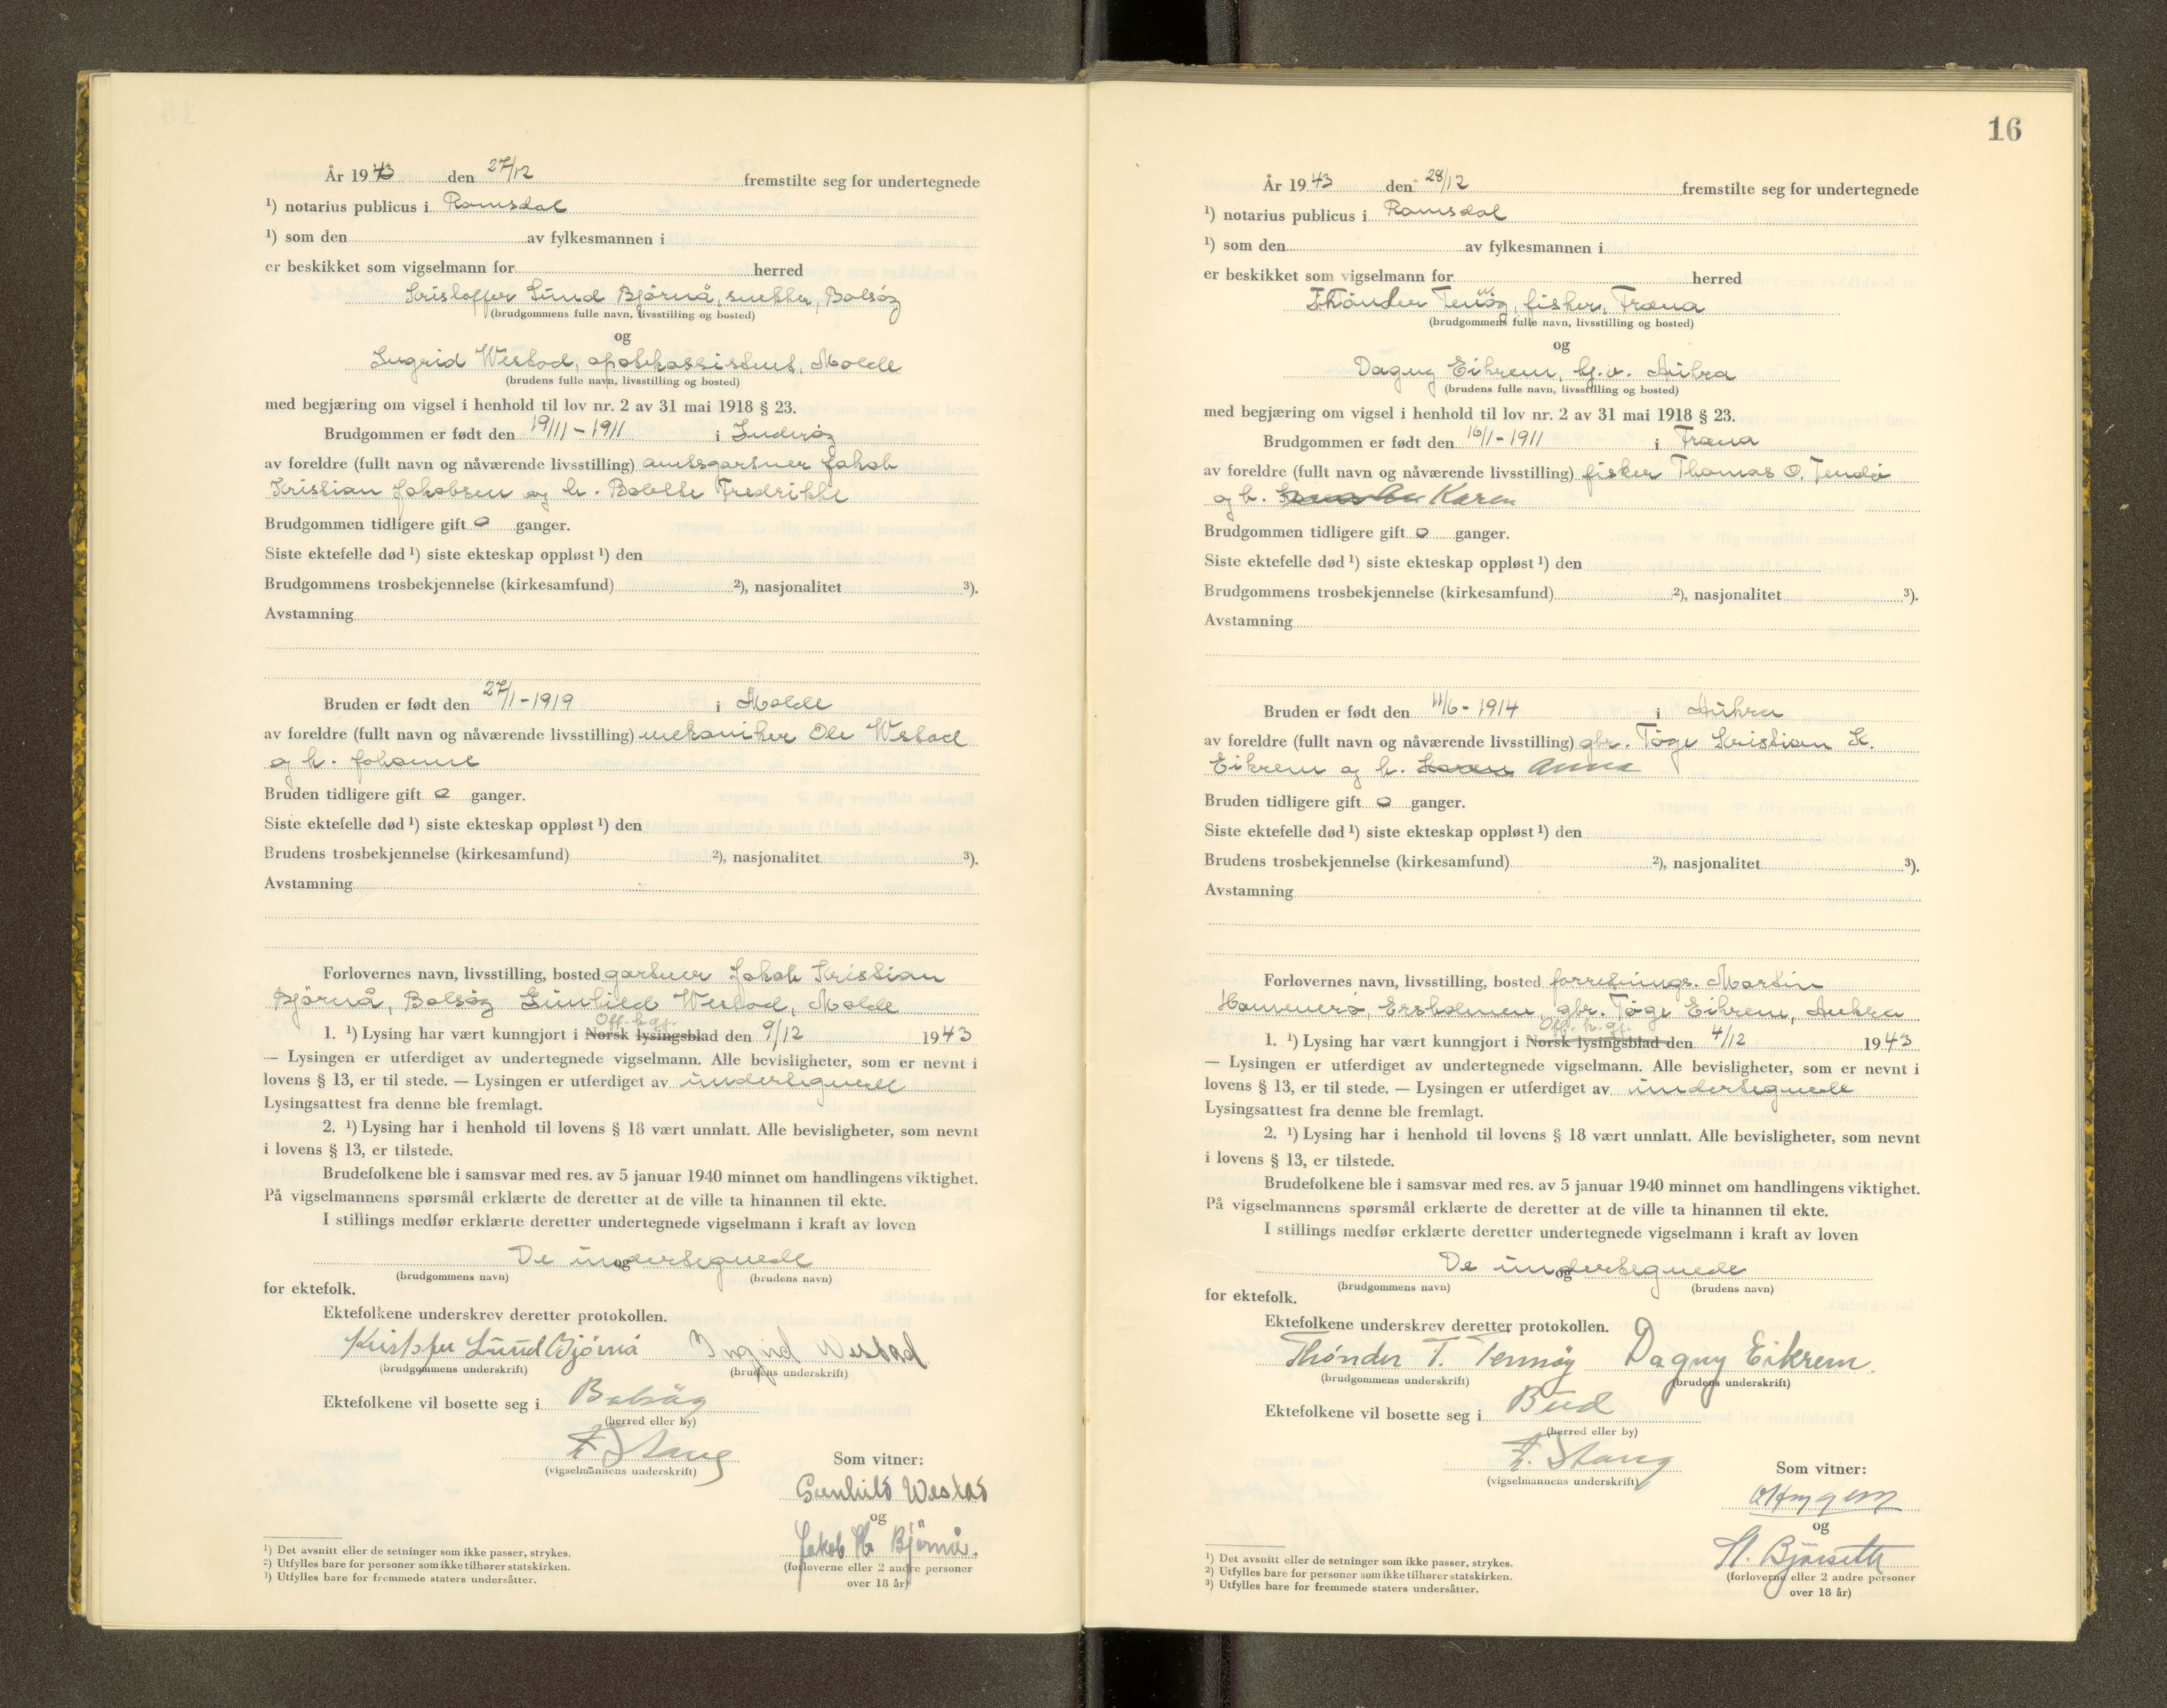 År 1943 den 27/12 fremstilte seg for undertegnede
¹) notarius publicus i Romsdal
¹) som den av fylkesmannen i
er beskikket som vigselmann for herred
Kristoffer Lund Björnå, snekker, Bolsöy
(brudgommens fulle navn, livsstilling og bosted)
og
Ingrid Westad, apotekassistent, Molde
(brudens fulle navn, livsstilling og bosted)
med begjæring om vigsel i henhold til lov nr. 2 av 31 mai 1918 § 23.
Brudgommen er født den 19/11-1911 i Inderöy
av foreldre (fullt navn og nåværende livsstilling) amtsgartner Jakob
Kristian Jakobsen og h. Bolette Fredrikke
Brudgommen tidligere gift 0 ganger.
Siste ektefelle død ¹) siste ekteskap oppløst ¹) den
Brudgommens trosbekjennelse (kirkesamfund) ²), nasjonalitet ³).
Avstamning
Bruden er født den 27/1-1919 i Molde
av foreldre (fullt navn og nåværende livsstilling) mekaniker Ole Westad
og h. Johanne
Bruden tidligere gift 0 ganger.
Siste ektefelle død ¹) siste ekteskap oppløst ¹) den
Brudens trosbekjennelse (kirkesamfund) ²), nasjonalitet ³).
Avstamning
Forlovernes navn, livsstilling, bosted gartner Jakob Kristian
Björnå, Bolsöy Gunhild Westad, Molde
Off. h. gj.
1. ¹) Lysing har vært kunngjort i Norsk lysingsblad den 9/12 1943
— Lysingen er utferdiget av undertegnede vigselmann. Alle bevisligheter, som er nevnt i
lovens § 13, er til stede. — Lysingen er utferdiget av undertegnede
Lysingsattest fra denne ble fremlagt.
2. ¹) Lysing har i henhold til lovens § 18 vært unnlatt. Alle bevisligheter, som nevnt
i lovens § 13, er tilstede.
Brudefolkene ble i samsvar med res. av 5 januar 1940 minnet om handlingens viktighet.
På vigselmannens spørsmål erklærte de deretter at de ville ta hinannen til ekte.
I stillings medfør erklærte deretter undertegnede vigselmann i kraft av loven
De undertegnede
og
(brudgommens navn) (brudens navn)
for ektefolk.
Ektefolkene underskrev deretter protokollen.
Kristofer Lund Björnå Ingrid Westad
(brudgommens underskrift) (brudens underskrift)
Ektefolkene vil bosette seg i Bolsöy
(herred eller by)
F. Stang
(vigselmannens underskrift)
Som vitner:
Gunhild Westad
og
Jakob Kr Björnå.
(forloverne eller 2 andre personer
over 18 år)
¹) Det avsnitt eller de setninger som ikke passer, strykes.
²) Utfylles bare for personer som ikke tilhører statskirken.
³) Utfylles bare for fremmede staters undersåtter.
16
År 1943 den 28/12 fremstilte seg for undertegnede
¹) notarius publicus i Romsdal
¹) som den av fylkesmannen i
er beskikket som vigselmann for herred
Thönder Tennöy, fisker, Fræna
(brudgommens fulle navn, livsstilling og bosted)
og
Dagny Eikrem, hj.v. Aukra
(brudens fulle navn, livsstilling og bosted)
med begjæring om vigsel i henhold til lov nr. 2 av 31 mai 1918 § 23.
Brudgommen er født den 16/1-1911 i Fræna
av foreldre (fullt navn og nåværende livsstilling) fisker Thomas O. Tendö
og h. Karen
Brudgommen tidligere gift 0 ganger.
Siste ektefelle død ¹) siste ekteskap oppløst ¹) den
Brudgommens trosbekjennelse (kirkesamfund) ²), nasjonalitet ³).
Avstamning
Bruden er født den 11/6-1914 i Aukra
av foreldre (fullt navn og nåværende livsstilling) gbr. Töge Kristian K.
Eikrem og h. Anna
Bruden tidligere gift 0 ganger.
Siste ektefelle død ¹) siste ekteskap oppløst ¹) den
Brudens trosbekjennelse (kirkesamfund) ²), nasjonalitet ³).
Avstamning
Forlovernes navn, livsstilling, bosted forretnings. Martin
Hammerö, Ersholmen gbr. Töge Eikrem, Aukra
Off. h. gj.
1. ¹) Lysing har vært kunngjort i Norsk lysingsblad den 4/12 1943
— Lysingen er utferdiget av undertegnede vigselmann. Alle bevisligheter, som er nevnt i
lovens § 13, er til stede. — Lysingen er utferdiget av undertegnede
Lysingsattest fra denne ble fremlagt.
2. ¹) Lysing har i henhold til lovens § 18 vært unnlatt. Alle bevisligheter, som nevnt
i lovens § 13, er tilstede.
Brudefolkene ble i samsvar med res. av 5 januar 1940 minnet om handlingens viktighet.
På vigselmannens spørsmål erklærte de deretter at de ville ta hinannen til ekte.
I stillings medfør erklærte deretter undertegnede vigselmann i kraft av loven
De undertegnede
og
(brudgommens navn) (brudens navn)
for ektefolk.
Ektefolkene underskrev deretter protokollen.
Thönder T. Tennöy Dagny Eikrem.
(brudgommens underskrift) (brudens underskrift)
Ektefolkene vil bosette seg i Bud
(herred eller by)
F. Stang
(vigselmannens underskrift)
Som vitner:
og
St. Björseth
(forloverne eller 2 andre personer
over 18 år)
¹) Det avsnitt eller de setninger som ikke passer, strykes.
²) Utfylles bare for personer som ikke tilhører statskirken.
³) Utfylles bare for fremmede staters undersåtter.